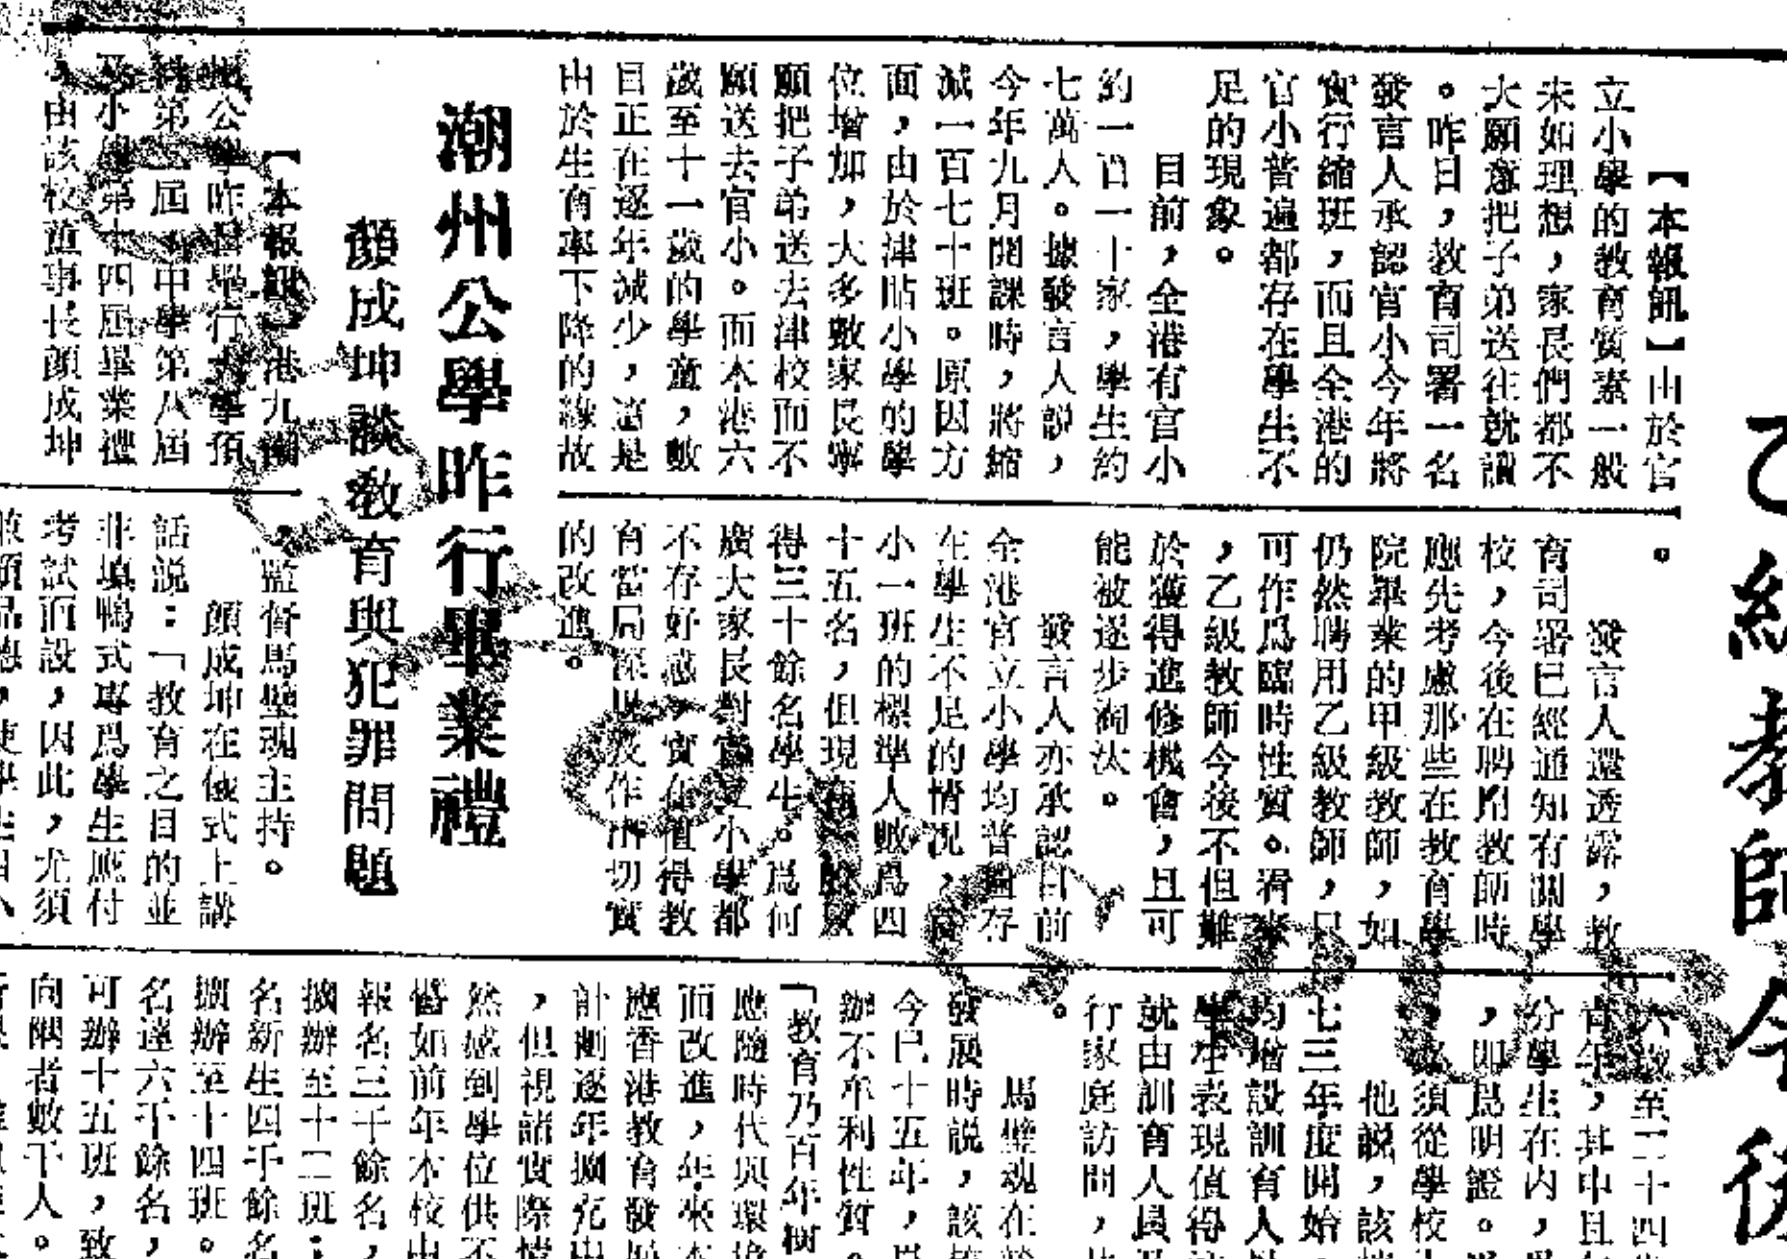 乙級教師今後
【本報訊】由於官
立小學的教育質素一般
未如理想，家長們都不
大願意把子弟送往就讀
。昨日，教育司署一名
發言人承認官小今年將
實行縮班，而且全港的
官小普遍都存在學生不
足的現象。
目前，全港有官小
約一百一十家，學生約
七萬人。據發言人說，
今年九月開課時，將縮
減一百七十班。原因方
面，由於津貼小學的學
位增加，大多數家長寧
願把子弟送去津校而不
願送去官小。而本港六
歲至十一歲的學童，數
目正在逐年減少，這是
由於生育率下降的緣故
。
發言人還透露，教
育司署已經通知有關學
校，今後在聘用教師時
應先考慮那些在教育學
院畢業的甲級教師，如
仍然聘用乙級教師，只
可作爲臨時性質。看來
，乙級教師今後不但難
於獲得進修機會，且可
能被逐步淘汰。
發言人亦承認目前
全港官立小學均普遍存
在學生不足的情况，官
小一班的標準人數爲四
十五名，但現
得三十餘名學生。爲何
廣大家長對官立小學都
不存好感，實在值得教
育當局深思及作出切實
的改進。
潮州公學昨行畢業禮
顏成坤談教育與犯罪問題
【本報訊】港九潮
州公學昨日舉行大學預
科第二屆，中學第八屆
及小學第十四屆畢業禮
，由該校董事長顏成坤
，監督馬璧魂主持。
顏成坤在儀式上講
話說：「教育之目的並
非填鴨式專爲學生應付
考試而設，因此，尤須
六歲至二十四
青年，其中且
分學生在內，
，即爲明證。
須從學校
他說，該
七三年度開始，
均增設訓育人
學生表現值得
就由訓育人員
行家庭訪問，
。
馬璧魂在
發展時說，該
今已十五年，
辦不牟利性質。
「教育乃百年樹
應隨時代與環境
而改進，年來本
應香港教育發展
計劃逐年擴充
，但視諸實際
然感到學位供不
譬如前年本校
報名三千餘名，
擴辦至十二班；
名新生四千餘名
擴辦至十四班。
名達六千餘名，
可辦十五班，致
向隅者數千人。